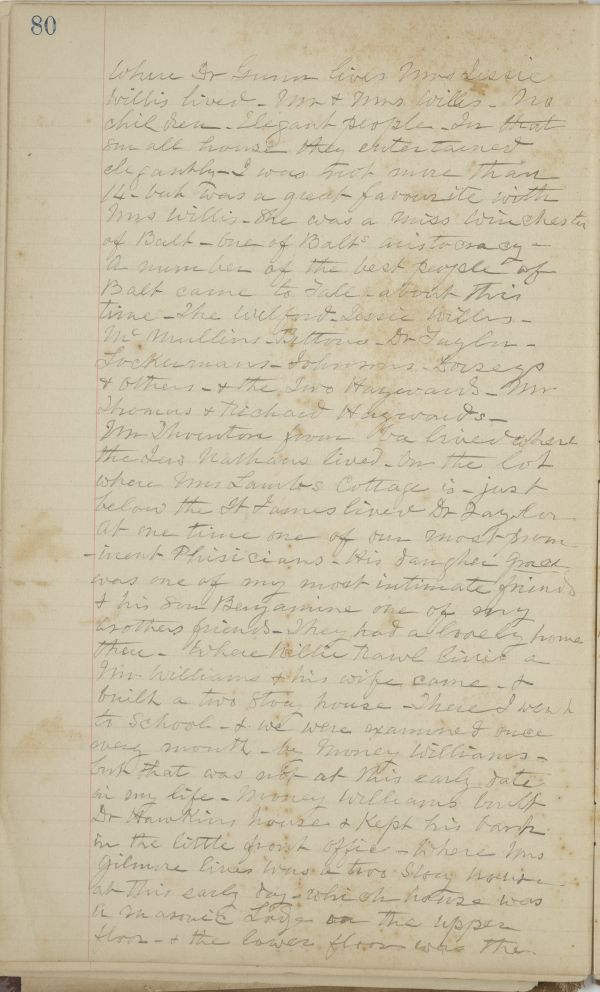 80
Where Dr Gunn lives Mrs Lissie
Willis lived - Mr & Mrs Willis - No
children - Elegant people - In that
small house they entertained
elegantly - I was not more than
14 - but was a great favourite with
Mrs Willis - She was a Miss Winchester
of Balt - One of Balts aristocracy -
A number of the best people of
Balt came to Tall - about this
time - The Welford - Lissie Willis -
Mc Mullins - Dr Taylor -
Lockermans - Johnsons - Dorseys
& others - & the two Haywards - Mr
Thomas & Richard Haywards -
Mr Thornton from Va lived where
the Jew Nathans lived - On the lot
where Mrs Lambs Cottage is - just
below the St James lived Dr Taylor
at one time one of our most prom
-inent Phisicians - His daugher Grace
was one of my most intimate friends
& his son Benjamine one of my
brothers friends - They had a lovely home
there - Where Willie Rawl lives a
Mr Williams & his wife came - &
built a two stoy house - There I went
to School - & we were examined once
every month - by Money Williams -
but that was not at this early date
in my life - Money Williams built
Dr Hawkins house & Kept his bank
in the little front office - Where Mrs
Gilmore lives was a two stoy house
at this early day - which house was
a masonic Lodge on the upper
floor - & the lower floor was the